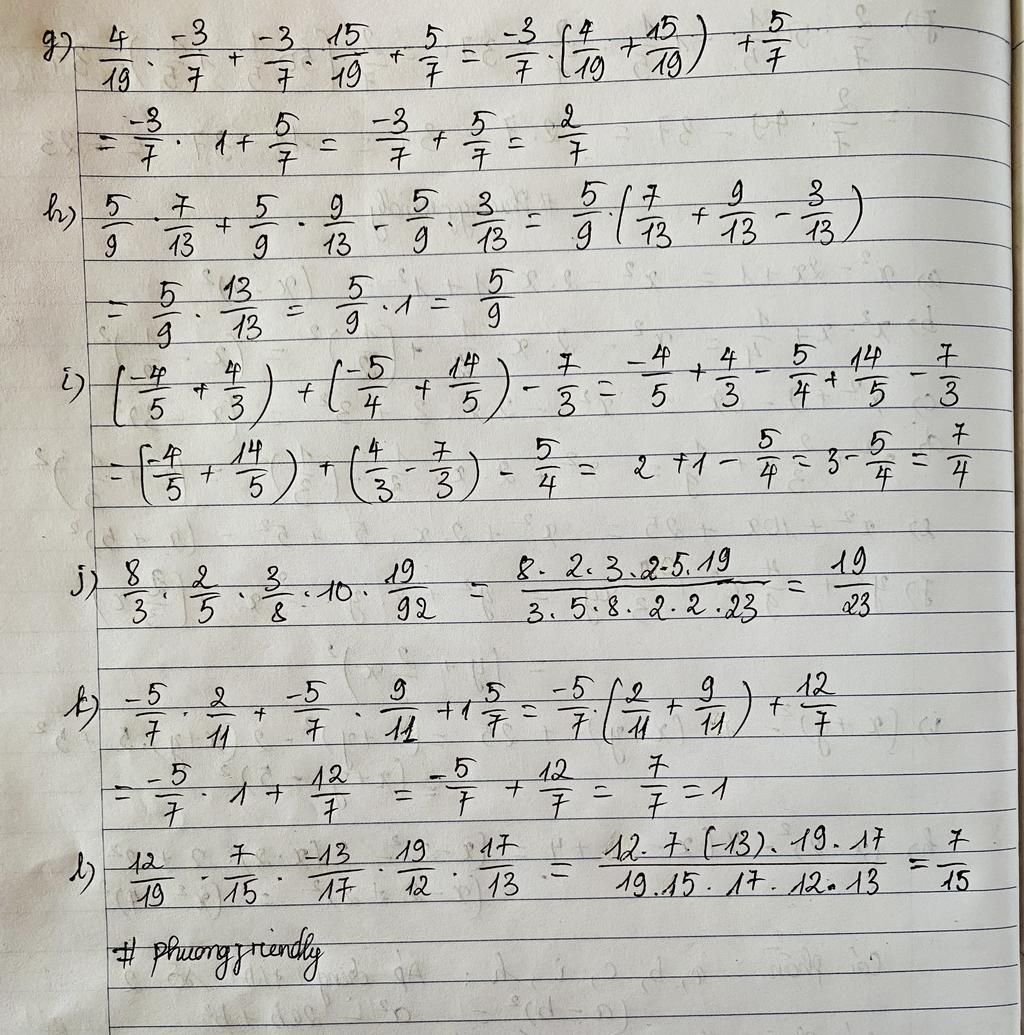 g) 4/19 · -3/7 + -3/7 · 15/19 + 5/7 = -3/7 · (4/19 + 15/19) + 5/7
= -3/7 · 1 + 5/7 = -3/7 + 5/7 = 2/7
h) 5/9 · 7/13 + 5/9 · 9/13 - 5/9 · 3/13 = 5/9 · (7/13 + 9/13 - 3/13)
= 5/9 · 13/13 = 5/9 · 1 = 5/9
i) (-4/5 + 4/3) + (-5/4 + 14/5) - 7/3 = -4/5 + 4/3 - 5/4 + 14/5 - 7/3
= (-4/5 + 14/5) + (4/3 - 7/3) - 5/4 = 2 + 1 - 5/4 = 3 - 5/4 = 7/4
j) 8/3 · 2/5 · 3/8 · 10 · 19/92 = 8 · 2 · 3 · 2 · 5 · 19 / 3 · 5 · 8 · 2 · 2 · 23 = 19/23
k) -5/7 · 2/11 + -5/7 · 9/11 + 1 5/7 = -5/7 · (2/11 + 9/11) + 12/7
= -5/7 · 1 + 12/7 = -5/7 + 12/7 = 7/7 = 1
l) 12/19 · 7/15 · -13/17 · 19/12 · 17/13 = 12 · 7 · (-13) · 19 · 17 / 19 . 15 · 17 · 12 · 13 = 7/15
# phuongfriendly